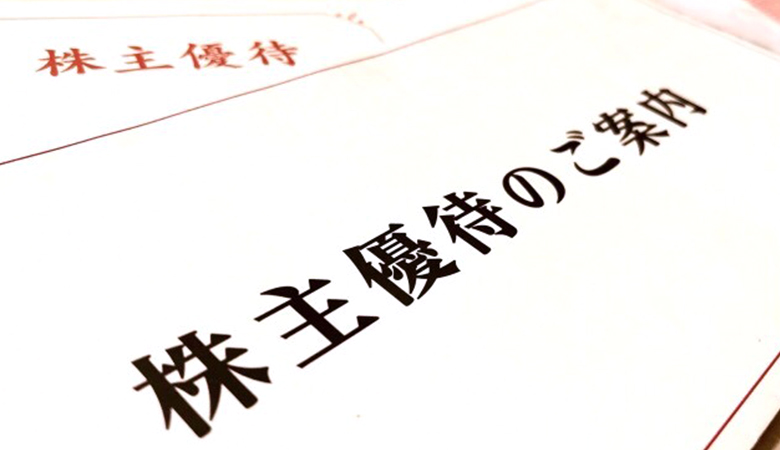 株主優待
株主優待のご案内